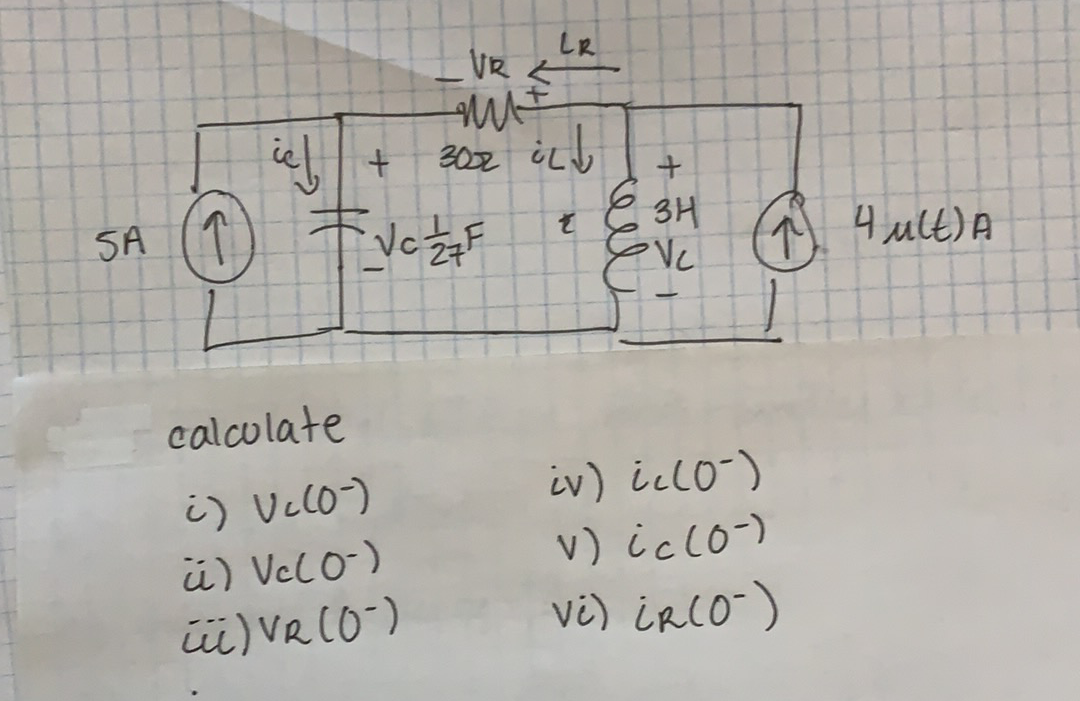 LR
- VR
+
ic
+
30Ω
iL
+
5A
- Vc 1/27 F
3H
VL
-
4 u(t) A
calculate
i) VL(0-)
ii) Vc(0-)
iii) VR(0-)
iv) iL(0-)
v) ic(0-)
vi) iR(0-)